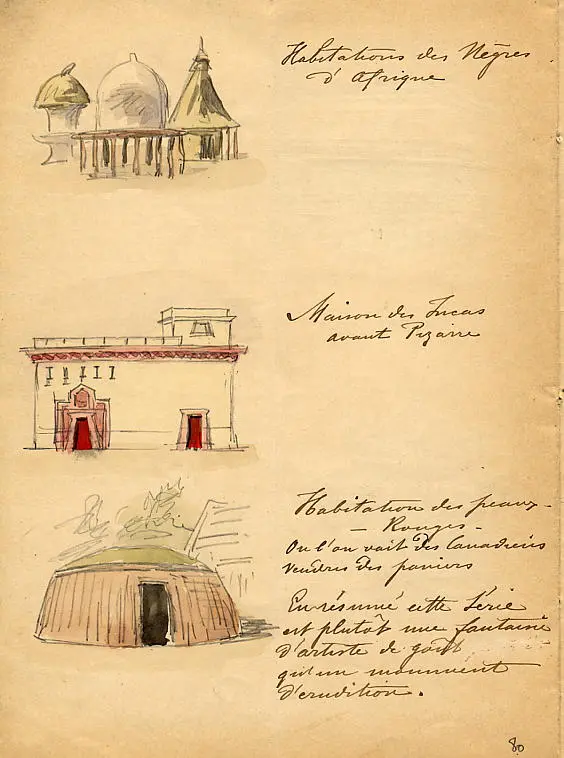 Habitations des Nègres
d'Afrique
Maison des Incas
avant Pizarre
Habitation des peaux-
- Rouges -
Ou l'on voit des Canadiens
vendres des paniers
En résumé cette Série
est plutot une fantaisie
d'artiste de goût
qu'un monument
d'erudition.
80